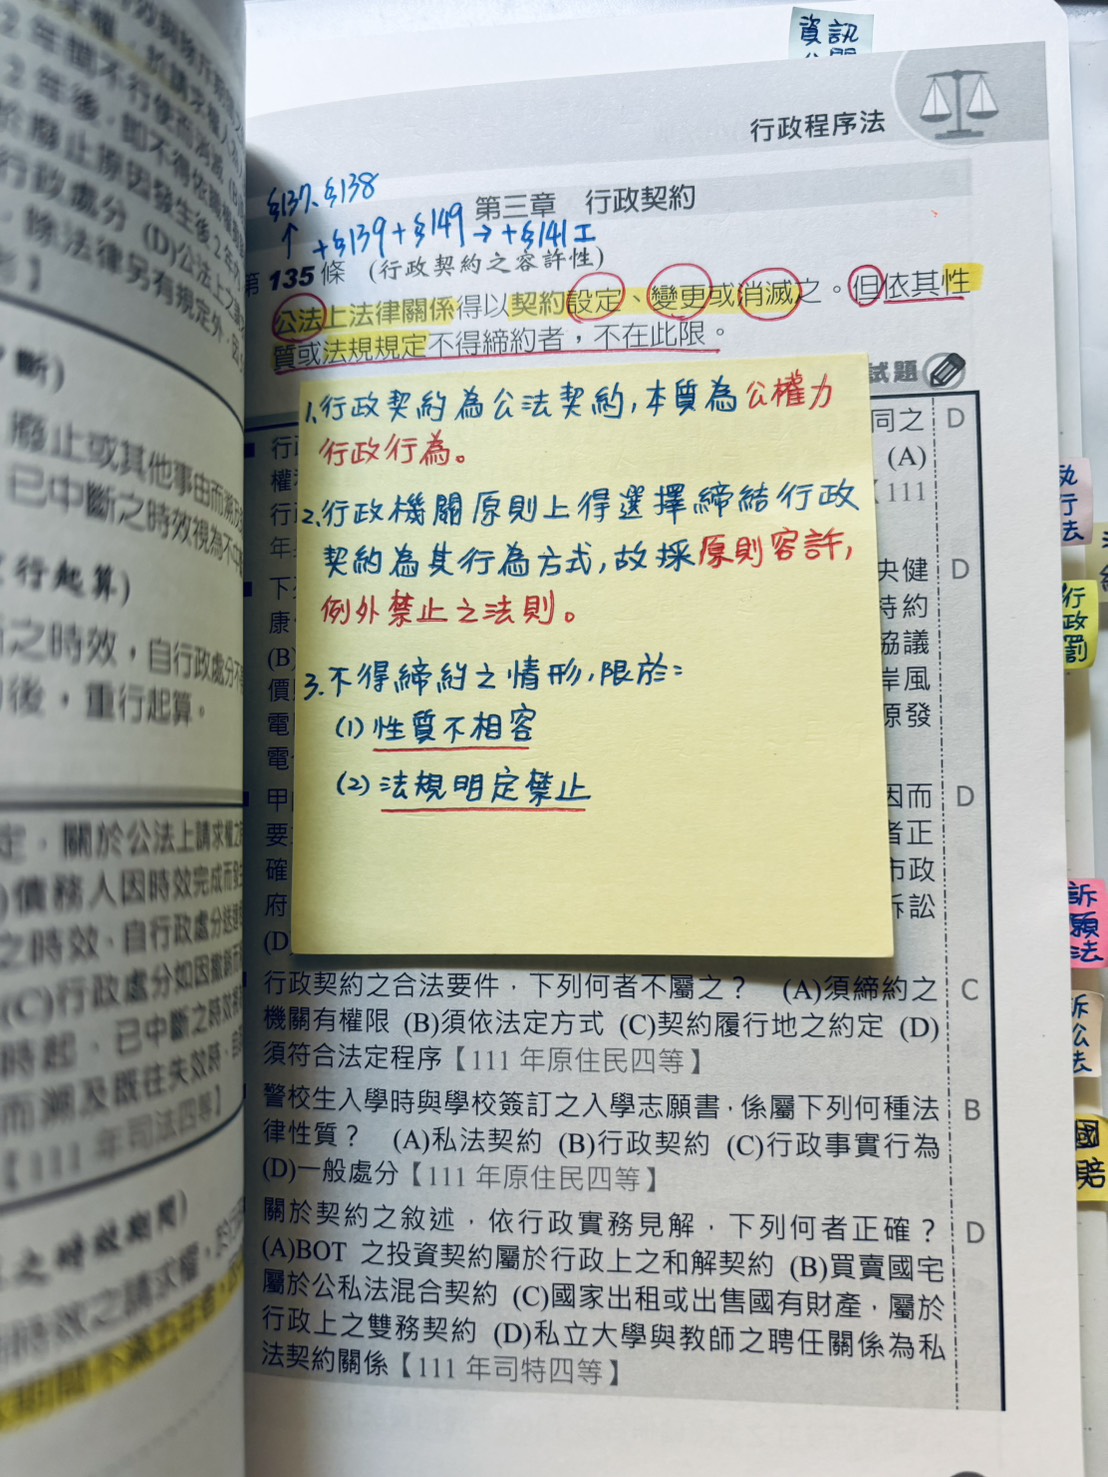 資訊
行政程序法
§137、§138
第三章 行政契約
↑ +§139+§149→+§141Ⅰ
第135條 (行政契約之容許性)
公法上法律關係得以契約設定、變更或消滅之。但依其性
質或法規規定不得締約者，不在此限。
試題
1.行政契約為公法契約,本質為公權力
行政行為。
2.行政機關原則上得選擇締結行政
契約為其行為方式,故採原則容許,
例外禁止之法則。
3.不得締約之情形,限於:
(1)性質不相容
(2)法規明定禁止
同之 D
(A)
111
年
央健 D
康 特約
(B) 協議
價 岸風
電 源發
電
甲 因而 D
要 者正
確 市政
府 訴訟
(D)
行政契約之合法要件，下列何者不屬之？ (A)須締約之 C
機關有權限 (B)須依法定方式 (C)契約履行地之約定 (D)
須符合法定程序【111 年原住民四等】
警校生入學時與學校簽訂之入學志願書，係屬下列何種法 B
律性質？ (A)私法契約 (B)行政契約 (C)行政事實行為
(D)一般處分【111 年原住民四等】
關於契約之敘述，依行政實務見解，下列何者正確？ D
(A)BOT 之投資契約屬於行政上之和解契約 (B)買賣國宅
屬於公私法混合契約 (C)國家出租或出售國有財產，屬於
行政上之雙務契約 (D)私立大學與教師之聘任關係為私
法契約關係【111 年司特四等】
執行法
行政罰
訴願法
訴訟法
國賠
2年間不行使而消滅
斷)
廢止或其他事由而溯及
已中斷之時效視為不中斷
行起算)
之時效，自行政處分
後，重行起算。
定，關於公法上請求權之
債務人因時效完成而
之時效，自行政處分送達
(C)行政處分如因撤銷
時起，已中斷之時效
而溯及既往失效時，
【111 年司法四等】
之時效期間)
時效之請求權，